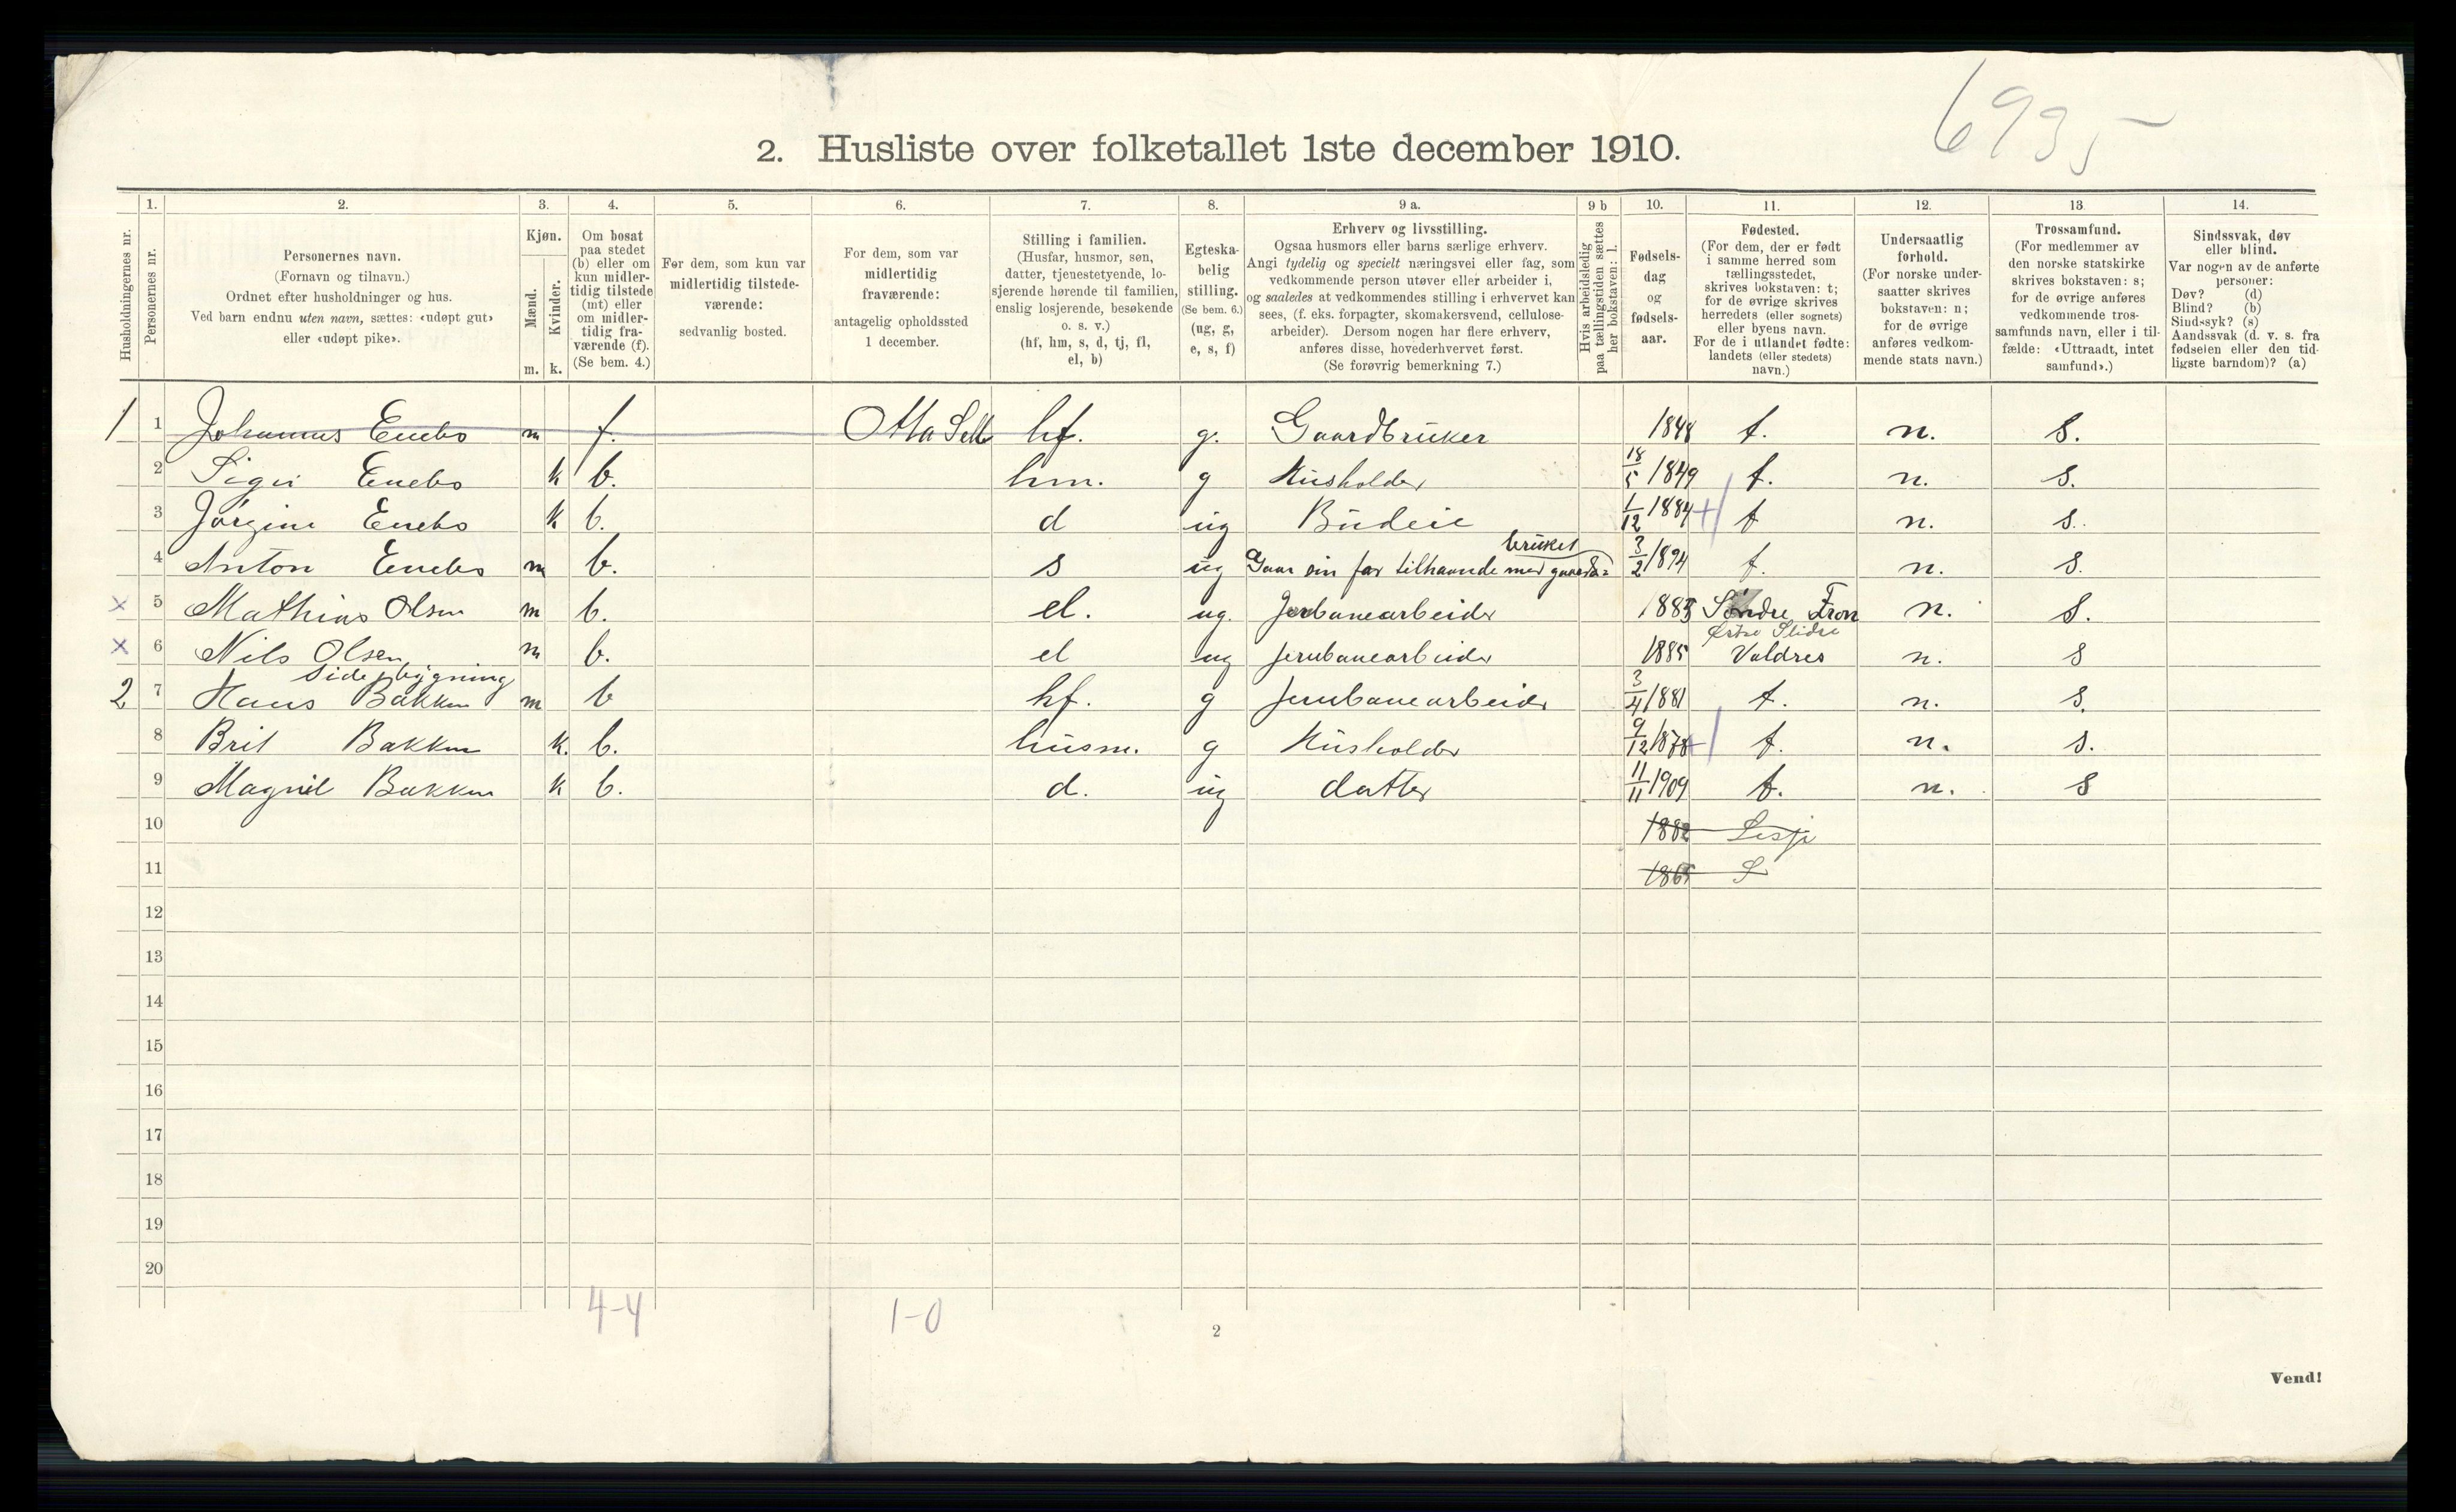 6935-
2. Husliste over folketallet 1ste december 1910.
1. 2. 3. 4. 5. 6. 7. 8. 9 a. 9 b 10. 11. 12. 13 14.
Husholdningernes nr.
Personernes nr.
Personernes navn.
(Fornavn og tilnavn.)
Ordnet efter husholdninger og hus.
Ved barn endnu uten navn, sættes: «udøpt gut»
eller «udøpt pike».
Kjøn.
Mænd.
Kvinder.
m. k.
Om bosat
paa stedet
(b) eller om
kun midler-
tidig tilstede
(mt) eller
om midler-
tidig fra-
værende (f).
(Se bem. 4.)
For dem, som kun var
midlertidig tilstede-
værende:
sedvanlig bosted.
For dem, som var
midlertidig
fraværende:
antagelig opholdssted
1 december.
Stilling i familien.
(Husfar, husmor, søn,
datter, tjenestetyende, lo-
sjerende hørende til familien,
enslig losjerende, besøkende
o. s. v.)
(hf, hm, s, d, tj, fl,
el, b)
Egteska-
belig
stilling.
(Se bem. 6.)
(ug, g,
e, s, f)
Erhverv og livsstilling.
Ogsaa husmors eller barns særlige erhverv.
Angi tydelig og specielt næringsvei eller fag, som
vedkommende person utøver eller arbeider i,
og saaledes at vedkommendes stilling i erhvervet kan
sees, (f. eks. forpagter, skomakersvend, cellulose-
arbeider). Dersom nogen har flere erhverv,
anføres disse, hovederhvervet først.
(Se forøvrig bemerkning 7.)
Hvis arbeidsledig
paa tællingstiden sættes
her bokstaven: l.
Fødsels-
dag
og
fødsels-
aar.
Fødested.
(For dem, der er født
i samme herred som
tællingsstedet,
skrives bokstaven: t;
for de øvrige skrives
herredets (eller sognets)
eller byens navn.
For de i utlandet fødte:
landets (eller stedets)
navn.)
Undersaatlig
forhold.
(For norske under-
saatter skrives
bokstaven: n;
for de øvrige
anføres vedkom-
mende stats navn.)
Trossamfund.
(For medlemmer av
den norske statskirke
skrives bokstaven: s;
for de øvrige anføres
vedkommende tros-
samfunds navn, eller i til-
fælde: «Uttraadt, intet
samfund».)
Sindssvak, døv
eller blind.
Var nogen av de anførte
personer:
Døv? (d)
Blind? (b)
Sindssyk? (s)
Aandssvak (d. v. s. fra
fødselen eller den tid-
ligste barndom)? (a)
1 1 Johannes Enebo m f. Otta Sell hf. g. Gaardbruker 1848 t. n. s.
2 Sigri Enebo k b. hm. g Husholder 18/5 1849 t. n. s.
3 Jørgine Enebo k b. d ug Budeie 1/12 1884 + t n. s.
4 Anton Enebo m b. s ug Gaar sin far tilhaande med gaards= bruket 3/2 1894 t. n. s.
x 5 Mathias Olsen m b. el. ug. Jernbanearbeider 1883 Søndre Fron n. s.
x 6 Nils Olsen m b. el ug Jernbanearbeider 1885 Østre Slidre Valdres n. s
Sidebygning
2 7 Hans Bakken m b hf. g Jernbanearbeider 3/4 1881 t. n. s.
8 Brit Bakken k. b. husm. g Husholder 9/12 1878 + t. n. s.
9 Magnil Bakken k b. d. ug datter 11/11 1909 t. n. s
10 1882 Lesje
11 1865 S
12
13
14
15
16
17
18
19
20
4-4 1-0
2
Vend!